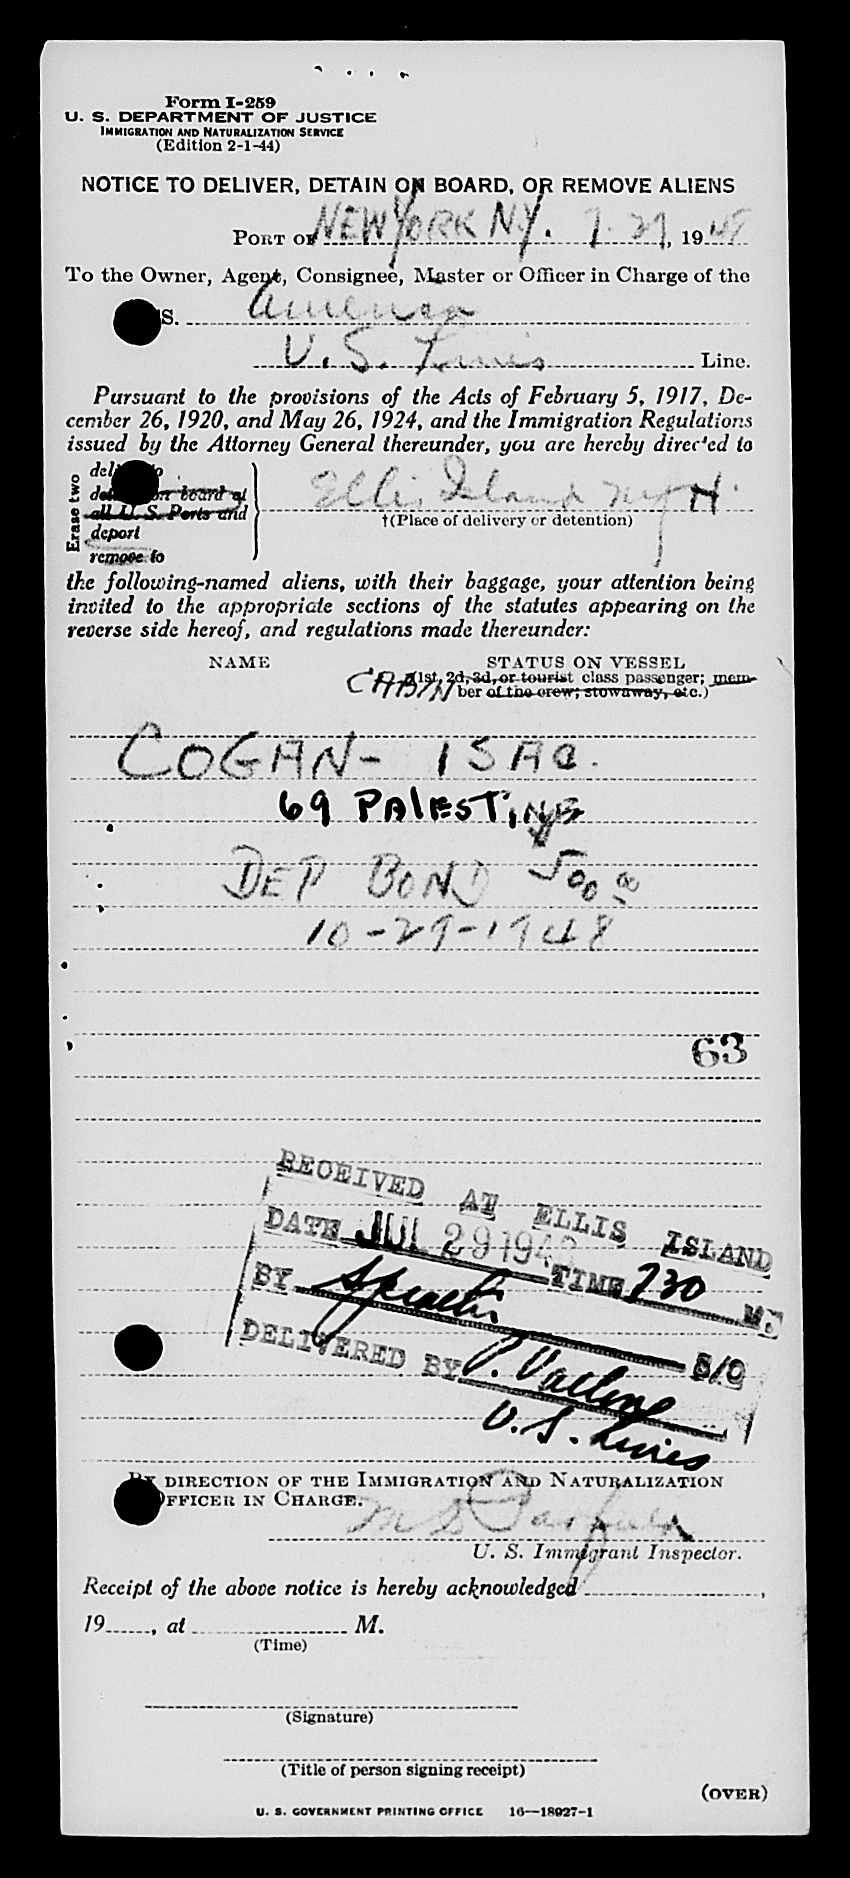 Form I-259
U. S. DEPARTMENT OF JUSTICE
IMMIGRATION AND NATURALIZATION SERVICE
(Edition 2-1-44)
NOTICE TO DELIVER, DETAIN ON BOARD, OR REMOVE ALIENS
PORT OF NEW YORK N.Y. 7-29, 1948
To the Owner, Agent, Consignee, Master or Officer in Charge of the
S. America
U. S. Lines Line.
Pursuant to the provisions of the Acts of February 5, 1917, De-
cember 26, 1920, and May 26, 1924, and the Immigration Regulations
issued by the Attorney General thereunder, you are hereby directed to
Erase two
deliver to
detain on board at
all U. S. Ports and
deport
remove to
Ellis Island NYH.
†(Place of delivery or detention)
the following-named aliens, with their baggage, your attention being
invited to the appropriate sections of the statutes appearing on the
reverse side hereof, and regulations made thereunder:
NAME STATUS ON VESSEL
CABIN (1st, 2d, 3d, or tourist class passenger; mem-
ber of the crew; stowaway, etc.)
COGAN - ISAC.
69 PALESTINE
DEP BOND 500 00
10-29-1948
63
RECEIVED AT ELLIS ISLAND
DATE JUL 29 1948 TIME 730 M.
BY S/O
DELIVERED BY
U.S. Lines
BY DIRECTION OF THE IMMIGRATION AND NATURALIZATION
OFFICER IN CHARGE.
U. S. Immigrant Inspector.
Receipt of the above notice is hereby acknowledged ,
19 , at M.
(Time)
(Signature)
(Title of person signing receipt)
(OVER)
U. S. GOVERNMENT PRINTING OFFICE 16—18927-1